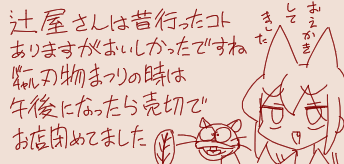 辻屋さんは昔行ったコト
ありますがおいしかったですね
刃物まつりの時は
午後になったら売切で
お店閉めてました
おえかき
して
きました